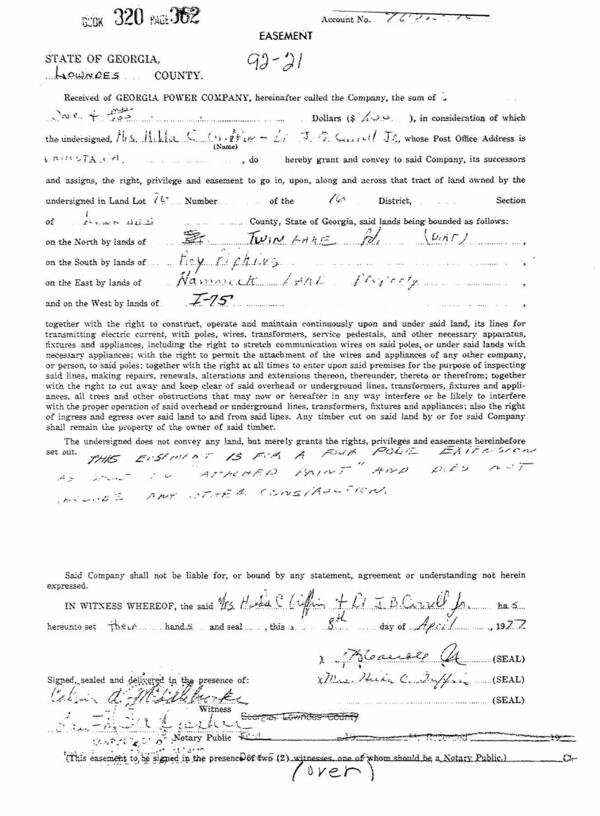 BOOK 320 PAGE 362
Account No.
EASEMENT
92-21
STATE OF GEORGIA,
LOWNDES COUNTY.
Received of GEORGIA POWER COMPANY, hereinafter called the Company, the sum of
One + Dollars ($ 1.00 ), in consideration of which
the undersigned, Mrs. Hilda C. Griffin - Lt J. B. Carroll Jr., whose Post Office Address is
(Name)
VALDOSTA GA. , do hereby grant and convey to said Company, its successors
and assigns, the right, privilege and easement to go in, upon, along and across that tract of land owned by the
undersigned in Land Lot 76 Number of the 16 District, Section
of LOWNDES County, State of Georgia, said lands being bounded as follows:
on the North by lands of TWIN LAKE Rd. (DIRT) ,
on the South by lands of Roy ,
on the East by lands of Hammock LAKE Property ,
and on the West by lands of I-75 ,
together with the right to construct, operate and maintain continuously upon and under said land, its lines for
transmitting electric current, with poles, wires, transformers, service pedestals, and other necessary apparatus,
fixtures and appliances, including the right to stretch communication wires on said poles, or under said lands with
necessary appliances; with the right to permit the attachment of the wires and appliances of any other company,
or person, to said poles; together with the right at all times to enter upon said premises for the purpose of inspecting
said lines, making repairs, renewals, alterations and extensions thereon, thereunder, thereto or therefrom; together
with the right to cut away and keep clear of said overhead or underground lines, transformers, fixtures and appli-
ances, all trees and other obstructions that may now or hereafter in any way interfere or be likely to interfere
with the proper operation of said overhead or underground lines, transformers, fixtures and appliances; also the right
of ingress and egress over said land to and from said lines. Any timber cut on said land by or for said Company
shall remain the property of the owner of said timber.
The undersigned does not convey any land, but merely grants the rights, privileges and easements hereinbefore
set out. THIS EASEMENT IS FOR A FOUR POLE EXTENSION
AS "ATTACHED PRINT" AND DOES NOT
INCLUDE ANY OTHER CONSTRUCTION.
Said Company shall not be liable for, or bound by any statement, agreement or understanding not herein
expressed.
IN WITNESS WHEREOF, the said Mrs. Hilda C Griffin + Lt J. B. Carroll Jr. has
hereunto set their hands and seal , this 8th day of April , 1977
x J B Carroll Jr (SEAL)
Signed, sealed and delivered in the presence of: x Mrs. Hilda C. Griffin (SEAL)
Calvin A. Middlebrooks (SEAL)
Witness
Georgia, Lowndes County
Notary Public
(This easement to be signed in the presence of two (2) witnesses, one of whom should be a Notary Public.)
(over)